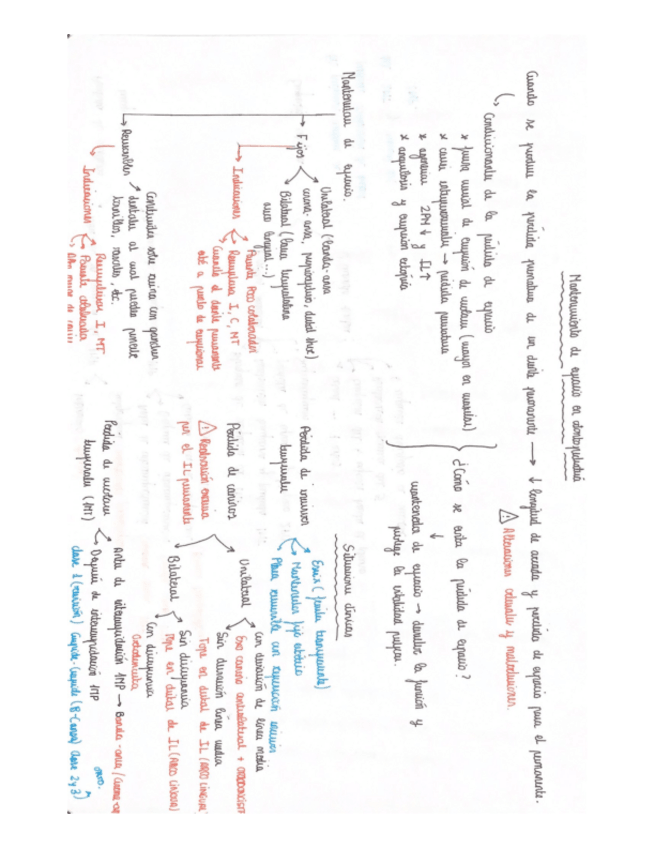 Mantenimiento de espacio en odontopediatría
Cuando se produce la pérdida prematura de un diente → ↓ longitud de arcada y pérdida de espacio para el permanente.
⚠ Alteraciones y maloclusiones
Condicionantes de la pérdida de espacio
* fuerza de erupción de molares (mayor en maxilar)
* caries interproximales → pérdida prematura
* agenesias 2PM ↓ y IL ↑
* anquilosis y erupción ectópica
¿Cómo se evita la pérdida de espacio?
↓
mantenedor de espacio → devolver la función y
protege la vitalidad pulpar.
Mantenedores de espacio.
→ Fijos
Unilateral (banda-ansa
corona-ansa, propioceptivo, distal shoe)
Bilateral (barra transpalatina
arco lingual...)
→ Indicaciones
Paciente poco colaborador
Reemplazar I, C, MT
Cuando el diente permanente
esté a punto de erupcionar
→ Removibles
Construidos sobre resina con ganchos
dentales al cual pueden ponerle
tornillos, resortes, etc.
→ Indicaciones
Reemplazar I, MT
Paciente colaborador
Situaciones clínicas
Pérdida de incisivos
temporales
Essix (férula transparente)
Mantenedor fijo estético
Placa removible con reposición incisivos
Pérdida de caninos
⚠ Reabsorción
por el IL permanente
Unilateral
con desviación de línea media
Exo canino contralateral + ORTODONCISTA
Sin desviación línea media
Tope en distal de IL (ARCO LINGUAL)
Bilateral
Sin discrepancia
Tope en distal de IL (ARCO LINGUAL)
Con discrepancia
Ortodoncista
Pérdida de molares
temporales (MT)
Antes de erupción 1MP → Banda-ansa /
Después de intercuspidación 1MP
clase 1 (revisión) Cúspide-Cúspide Clase 2 y 3